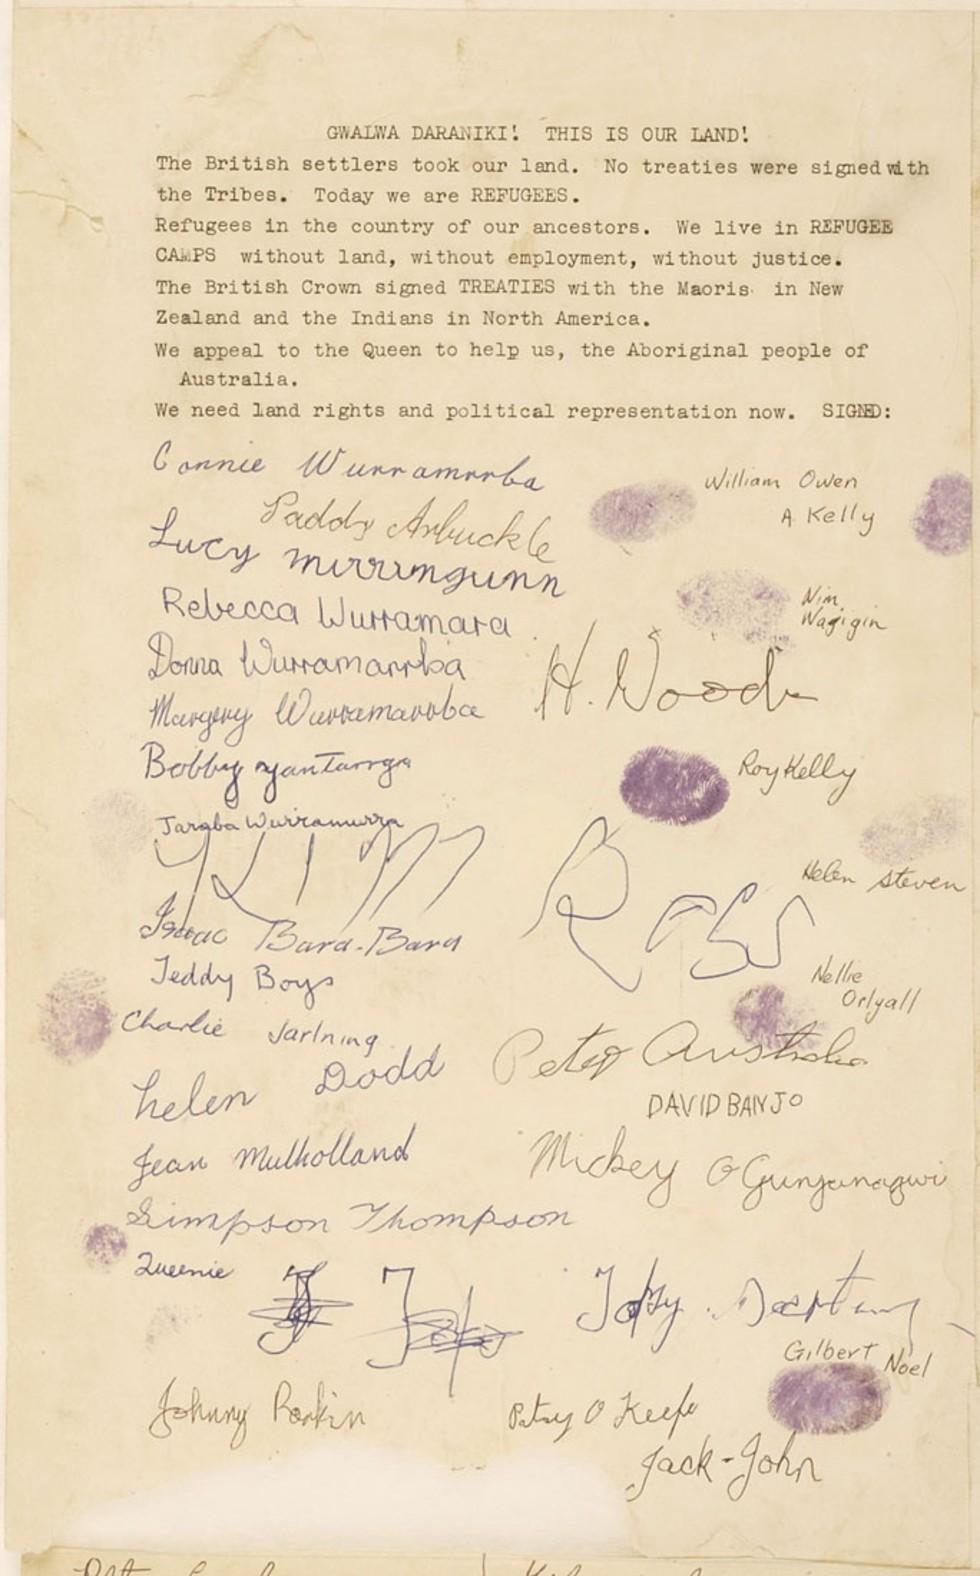 GWALWA DARANIKI! THIS IS OUR LAND!
The British settlers took our land. No treaties were signed with
the Tribes. Today we are REFUGEES.
Refugees in the country of our ancestors. We live in REFUGEE
CAMPS without land, without employment, without justice.
The British Crown signed TREATIES with the Maoris in New
Zealand and the Indians in North America.
We appeal to the Queen to help us, the Aboriginal people of
Australia.
We need land rights and political representation now. SIGNED:
Connie Wurramrrba
William Owen
A. Kelly
Paddy Arbuckle
Lucy mirringunn
Nim
Wagigin
Rebecca Wurramara
Donna Wurramarrba
H. Woods
Margery Wurramarrba
Bobby
Roy Kelly
Jaraba Wurramurra
Helen Steven
Ross
Isaac Bara-Bara
Teddy Boys
Nellie
Orlyall
Charlie Jarlning
Peter Australia
Helen Dodd
DAVID BANJO
Jean Mulholland
Mickey O Gunjanagwi
Simpson Thompson
Queenie
Toby
Gilbert Noel
Johnny Parkin
Patsy O Keefe
Jack-John